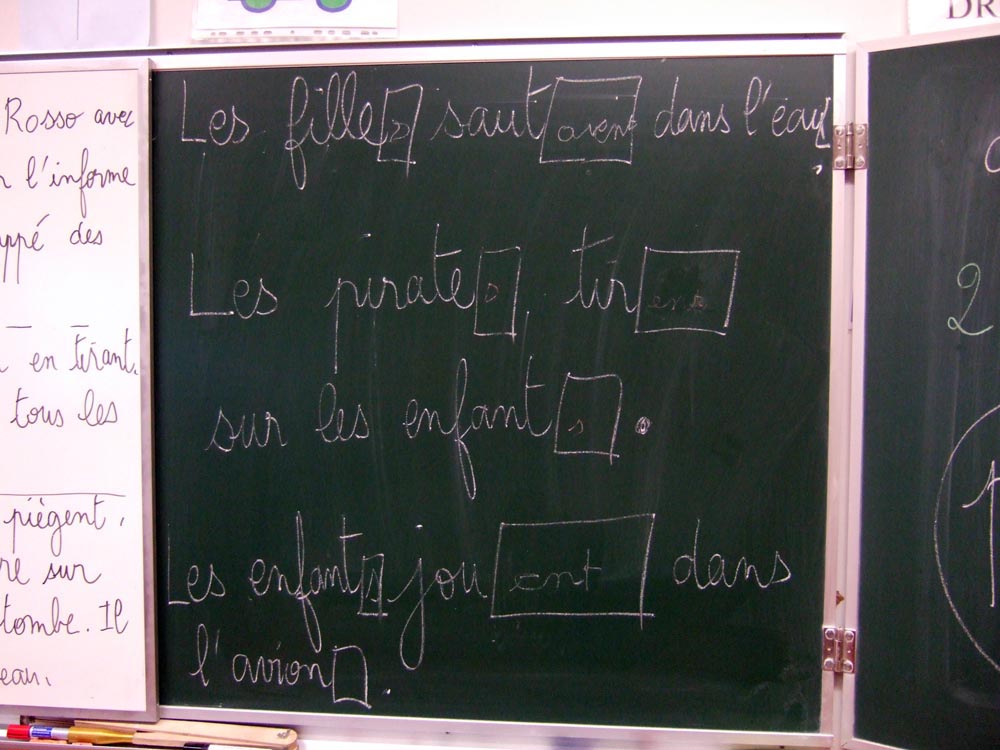 DR
Rosso avec
l'informe
ppé des
en tirant.
tous les
piègent,
re sur
tombe. Il
eau.
Les filles sautaient dans l'eau
Les pirates tirent
sur les enfants.
Les enfants jouent dans
l'avion.
2